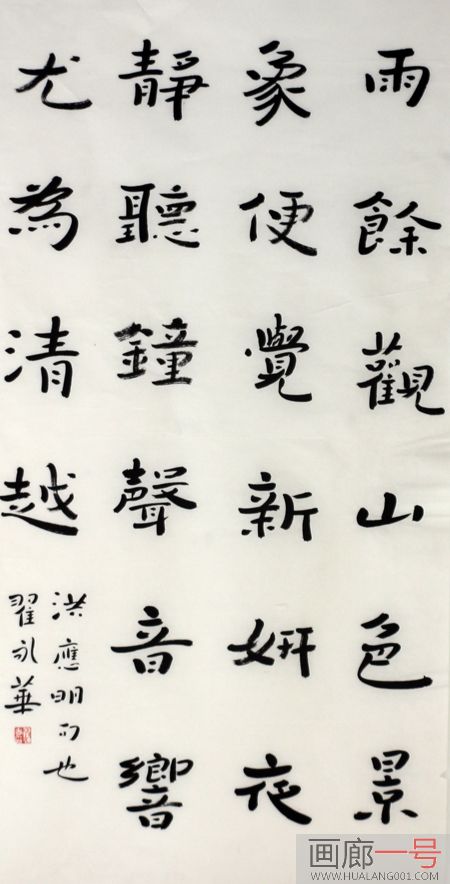 雨餘觀山色景
象便覺新妍夜
靜聽鐘聲音響
尤為清越
洪應明句也
翟永華
画廊一号
WWW.HUALANG001.COM